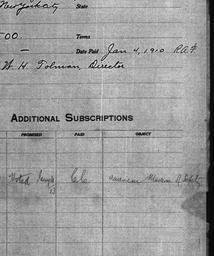 New York City State
00. Terms
— Date Paid Jan 4, 1910 R.A.F.
W. H. Tolman, Director
ADDITIONAL SUBSCRIPTIONS
PROMISED PAID OBJECT
Museum Safety
13